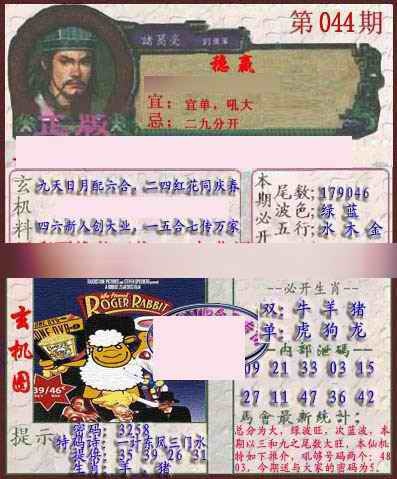 第044期
諸葛亮
稳赢
宜：宜单，吼大
忌：二九分开
正版
玄机料
九天日月配六合，二四红花同庆春
四六浙人创大业，一五合七传万家
本期必开
尾数：179046
波色：绿 蓝
五行：水 木 金
玄机图
ROGER RABBIT
39/46
--必开生肖--
双：牛 羊 猪
单：虎 狗 龙
--内部泄码--
09 21 33 03 15
27 11 47 36 42
马會最新统计：
总分为大，绿波旺，次蓝波，本
期以三和九之尾数大旺，本仙机
特如下推介，吼够号码两个：48
03，今期送与大家的密码为5。
提示
密码：3258
特码诗：一计东风三门永
提供：35 39 26 31
生肖：羊、猪